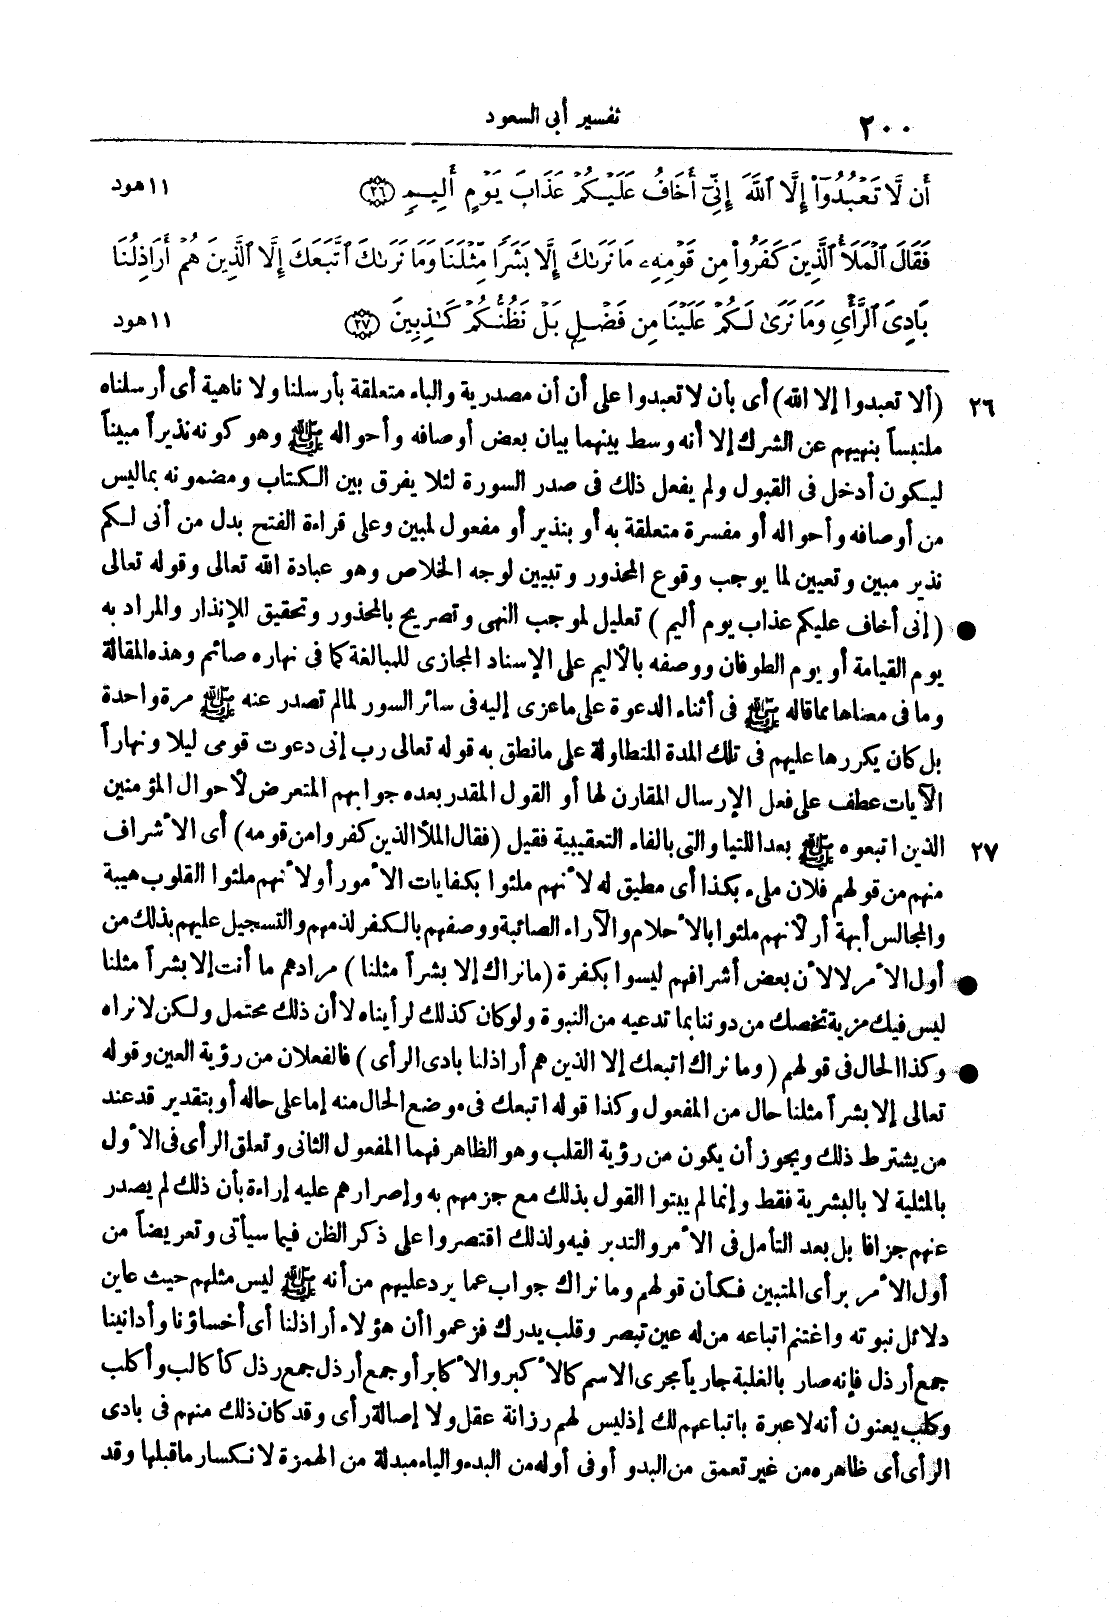 ٢٠٠
تفسير أبى السعود
أَن لَّا تَعْبُدُوٓا۟ إِلَّا ٱللَّهَ إِنِّىٓ أَخَافُ عَلَيْكُمْ عَذَابَ يَوْمٍ أَلِيمٍ ﴿٢٦﴾ ١١ هود
فَقَالَ ٱلْمَلَأُ ٱلَّذِينَ كَفَرُوا۟ مِن قَوْمِهِۦ مَا نَرَىٰكَ إِلَّا بَشَرًا مِّثْلَنَا وَمَا نَرَىٰكَ ٱتَّبَعَكَ إِلَّا ٱلَّذِينَ هُمْ أَرَاذِلُنَا
بَادِىَ ٱلرَّأْىِ وَمَا نَرَىٰ لَكُمْ عَلَيْنَا مِن فَضْلٍ بَلْ نَظُنُّكُمْ كَـٰذِبِينَ ﴿٢٧﴾ ١١ هود
٢٦ (ألا تعبدوا إلا الله) أى بأن لا تعبدوا على أن أن مصدرية والباء متعلقة بأرسلنا ولا ناهية أى أرسلناه
ملتبساً بنهيهم عن الشرك إلا أنه وسط بينهما بيان بعض أوصافه وأحواله ﷺ وهو كونه نذيراً مبيناً
ليكون أدخل فى القبول ولم يفعل ذلك فى صدر السورة لئلا يفرق بين الكتاب ومضمونه بما ليس
من أوصافه وأحواله أو مفسرة متعلقة به أو بنذير أو مفعول لمبين وعلى قراءة الفتح بدل من أنى لكم
نذير مبين وتعيين لما يوجب وقوع المحذور وتبيين لوجه الخلاص وهو عبادة الله تعالى وقوله تعالى
● (إنى أخاف عليكم عذاب يوم أليم) تعليل لموجب النهى وتصريح بالمحذور وتحقيق للإنذار والمراد به
يوم القيامة أو يوم الطوفان ووصفه بالأليم على الإسناد المجازى للمبالغة كما فى نهاره صائم وهذه المقالة
وما فى معناها مما قاله ﷺ فى أثناء الدعوة على ما عزى إليه فى سائر السور لما لم تصدر عنه ﷺ مرة واحدة
بل كان يكررها عليهم فى تلك المدة المتطاولة على ما نطق به قوله تعالى رب إنى دعوت قومى ليلا ونهاراً
الآيات عطف على فعل الإرسال المقارن لها أو القول المقدر بعده جوابهم المتعرض لأحوال المؤمنين
٢٧ الذين اتبعوه ﷺ بعد اللتيا والتى بالفاء التعقيبية فقيل (فقال الملأ الذين كفروا من قومه) أى الأشراف
منهم من قولهم فلان ملىء بكذا أى مطيق له لأنهم ملئوا بكفايات الأمور أو لأنهم ملئوا القلوب هيبة
والمجالس أبهة أو لأنهم ملئوا بالأحلام والآراء الصائبة ووصفهم بالكفر لذمهم والتسجيل عليهم بذلك من
● أول الأمر لا لأن بعض أشرافهم ليسوا بكفرة (ما نراك إلا بشراً مثلنا) مرادهم ما أنت إلا بشراً مثلنا
ليس فيك مزية تخصك من دوننا بما تدعيه من النبوة ولو كان كذلك لرأيناه لا أن ذلك محتمل ولكن لا نراه
● وكذا الحال فى قولهم (وما نراك اتبعك إلا الذين هم أراذلنا بادى الرأى) فالفعلان من رؤية العين وقوله
تعالى إلا بشراً مثلنا حال من المفعول وكذا قوله اتبعك فى موضع الحال منه إما على حاله أو بتقدير قد عند
من يشترط ذلك ويجوز أن يكون من رؤية القلب وهو الظاهر فهما المفعول الثانى وتعلق الرأى فى الأول
بالمثلية لا بالبشرية فقط وإنما لم يبتوا القول بذلك مع جزمهم به وإصرارهم عليه إراءة بأن ذلك لم يصدر
عنهم جزافا بل بعد التأمل فى الأمر والتدبر فيه ولذلك اقتصروا على ذكر الظن فيما سيأتى وتعريضاً من
أول الأمر برأى المتبين فكأن قولهم وما نراك جواب عما يرد عليهم من أنه ﷺ ليس مثلهم حيث عاين
دلائل نبوته واغتنم اتباعه من له عين تبصر وقلب يدرك فزعموا أن هؤلاء أراذلنا أى أخساؤنا وأدانينا
جمع أرذل فإنه صار بالغلبة جارياً مجرى الاسم كالأكبر والأكابر أو جمع أرذل جمع رذل كأكالب وأكلب
وكلب يعنون أنه لا عبرة باتباعهم لك إذ ليس لهم رزانة عقل ولا إصالة رأى وقد كان ذلك منهم فى بادى
الرأى أى ظاهره من غير تعمق من البدو أو فى أوله من البدء والياء مبدلة من الهمزة لانكسار ما قبلها وقد